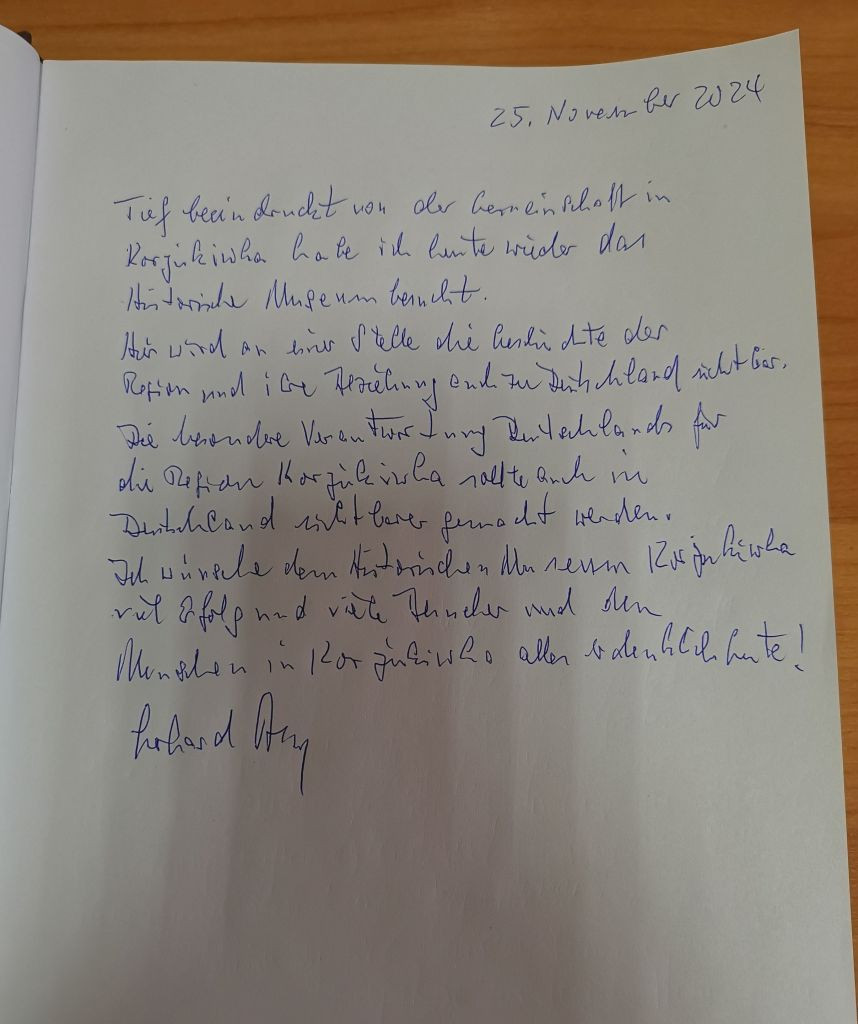 25. November 2024
Tief beeindruckt von der Gemeinschaft in
Korjukiwka habe ich heute wieder das
Historische Museum besucht.
Hier wird an einer Stelle die Geschichte der
Region und ihre Beziehung auch zu Deutschland sichtbar.
Die besondere Verantwortung Deutschlands für
die Region Korjukiwka sollte auch in
Deutschland sichtbarer gemacht werden.
Ich wünsche dem Historischen Museum Korjukiwka
viel Erfolg und viele Besucher und den
Menschen in Korjukiwka alles erdenklich Gute!
Gerhard